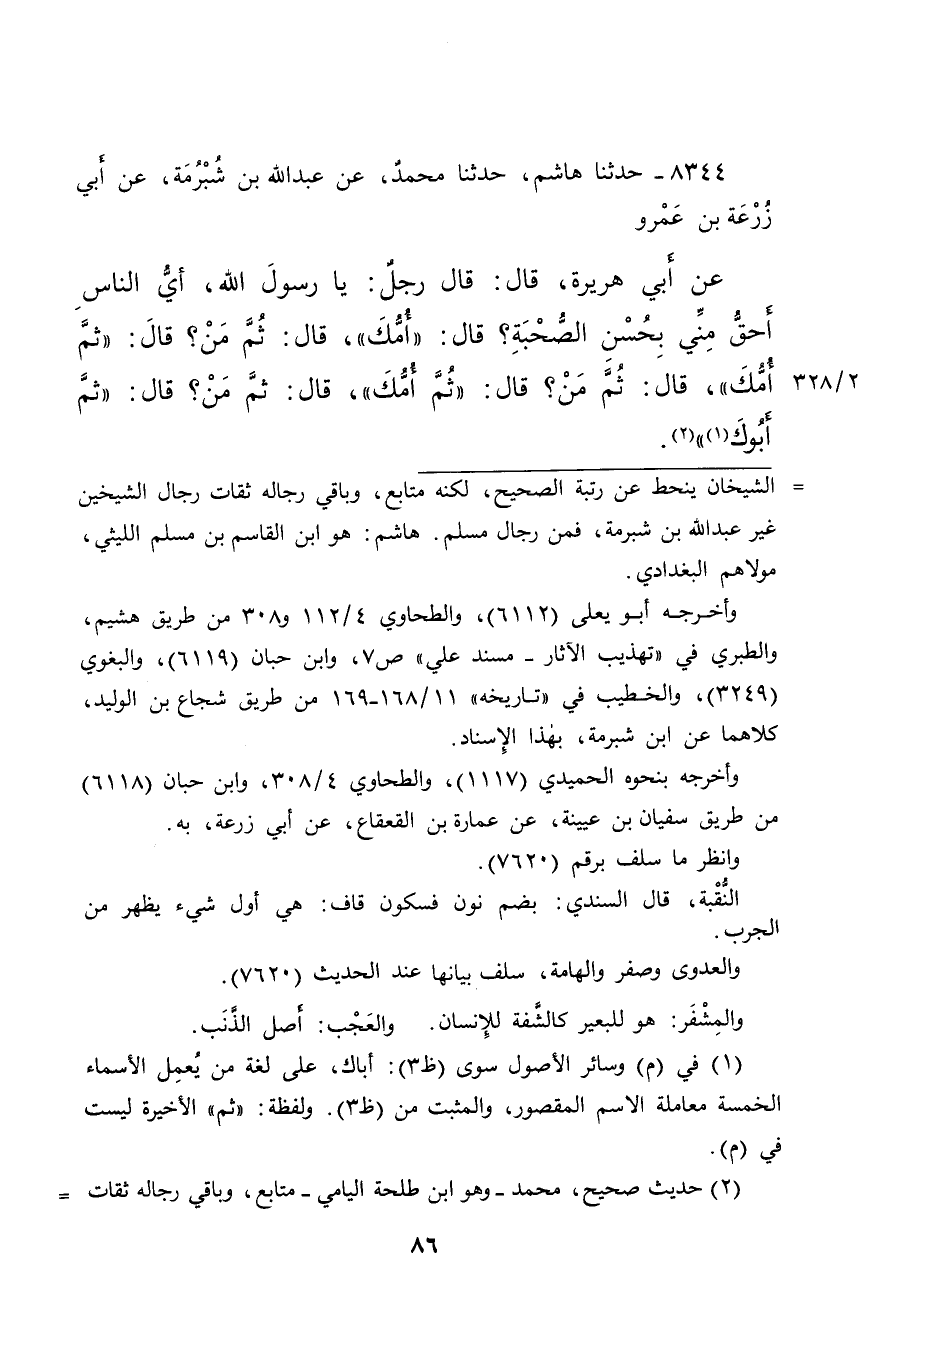 ٨٣٤٤ـ حدثنا هاشم، حدثنا محمدٌ، عن عبدالله بن شُبْرُمَة، عن أَبي
زُرْعَة بن عَمْرو
عن أَبي هريرة، قال: قال رجلٌ: يا رسولَ الله، أيُّ الناسِ
أَحقُّ مِنِّي بِحُسْنِ الصُّحْبَةِ؟ قال: «أُمُّكَ»، قال: ثُمَّ مَنْ؟ قالَ: «ثمَّ
أُمُّكَ»، قال: ثُمَّ مَنْ؟ قال: «ثُمَّ أُمُّكَ»، قال: ثمَّ مَنْ؟ قال: «ثمَّ ٣٢٨/٢
أَبُوكَ(١)»(٢).
= الشيخان ينحط عن رتبة الصحيح، لكنه متابع، وباقي رجاله ثقات رجال الشيخين
غير عبدالله بن شبرمة، فمن رجال مسلم. هاشم: هو ابن القاسم بن مسلم الليثي،
مولاهم البغدادي.
وأخرجه أبو يعلى (٦١١٢)، والطحاوي ١١٢/٤ و٣٠٨ من طريق هشيم،
والطبري في «تهذيب الآثار ـ مسند علي» ص٧، وابن حبان (٦١١٩)، والبغوي
(٣٢٤٩)، والخطيب في «تاريخه» ١٦٨/١١-١٦٩ من طريق شجاع بن الوليد،
كلاهما عن ابن شبرمة، بهٰذا الإسناد.
وأخرجه بنحوه الحميدي (١١١٧)، والطحاوي ٣٠٨/٤، وابن حبان (٦١١٨)
من طريق سفيان بن عيينة، عن عمارة بن القعقاع، عن أبي زرعة، به.
وانظر ما سلف برقم (٧٦٢٠).
النُّقْبة، قال السندي: بضم نون فسكون قاف: هي أول شيء يظهر من
الجرب.
والعدوى وصفر والهامة، سلف بيانها عند الحديث (٧٦٢٠).
والمِشْفَر: هو للبعير كالشَّفة للإنسان. والعَجْب: أَصل الذَّنَب.
(١) في (م) وسائر الأصول سوى (ظ٣): أباك، على لغة من يُعمِل الأسماء
الخمسة معاملة الاسم المقصور، والمثبت من (ظ٣). ولفظة: «ثم» الأخيرة ليست
في (م).
(٢) حديث صحيح، محمد ـ وهو ابن طلحة اليامي ـ متابع، وباقي رجاله ثقات =
٨٦